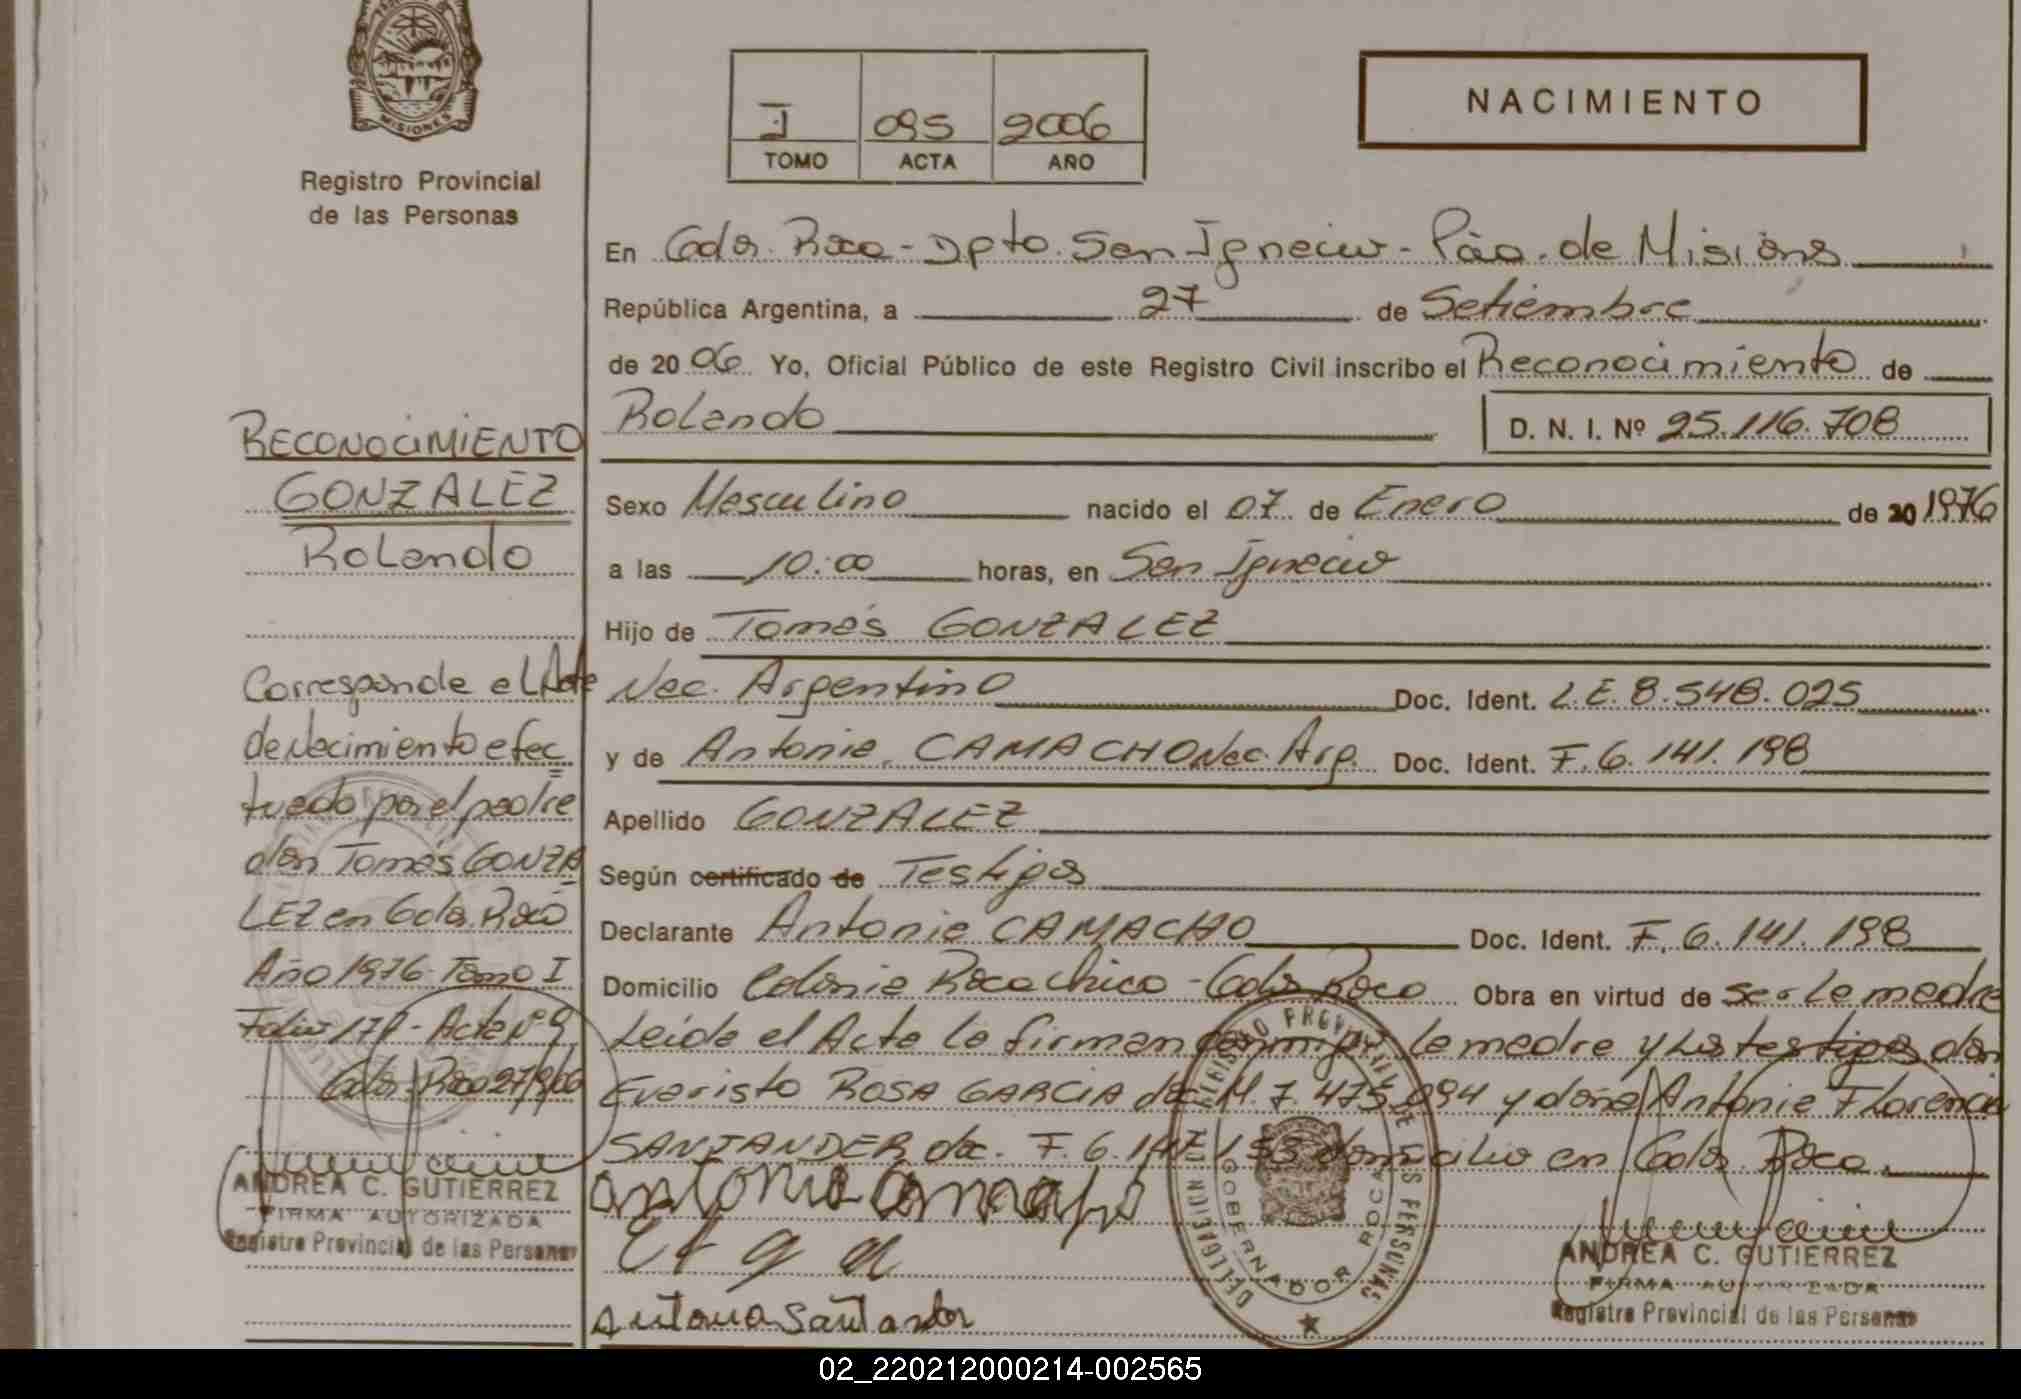 MISIONES
Registro Provincial
de las Personas
RECONOCIMIENTO
GONZALEZ
Rolando
Corresponde el Acta
de Nacimiento efec
tuado por el padre
don Tomás GONZA
LEZ en Gdor. Roca
Año 1976- Tomo I
Folio 17 - Acta Nº 9
Gdor. Roca 27/9/06
ANDREA C. GUTIERREZ
FIRMA AUTORIZADA
Registro Provincial de las Personas
I 095 2006
TOMO ACTA AÑO
NACIMIENTO
En Gdor. Roca - Dpto. San Ignacio - Pcia. de Misiones
República Argentina, a 27 de Setiembre
de 2006 Yo, Oficial Público de este Registro Civil inscribo el Reconocimiento de
Rolando D. N. I. Nº 25.116.708
Sexo Masculino nacido el 07 de Enero de 20 1976
a las 10:00 horas, en San Ignacio
Hijo de Tomás GONZALEZ
Nac. Argentino Doc. Ident. L.E. 8.548.025
y de Antonia CAMACHO Nac. Arg. Doc. Ident. F. 6.141.198
Apellido GONZALEZ
Según certificado de Testigos
Declarante Antonia CAMACHO Doc. Ident. F. 6.141.198
Domicilio Colonia Roca Chica - Gdor. Roca Obra en virtud de ser la madre
Leída el Acta la firman conmigo la madre y los testigos don
Evaristo ROSA GARCIA doc. M. 7.475.094 y doña Antonia Florencia
SANTANDER doc. F. 6.147.153 domicilio en Gdor. Roca
Antonia Camacho
E r g a
Antonia Santander
DELEGACION DEL REGISTRO PROVINCIAL DE LAS PERSONAS
GOBERNADOR ROCA
ANDREA C. GUTIERREZ
FIRMA AUTORIZADA
Registro Provincial de las Personas
02_220212000214-002565